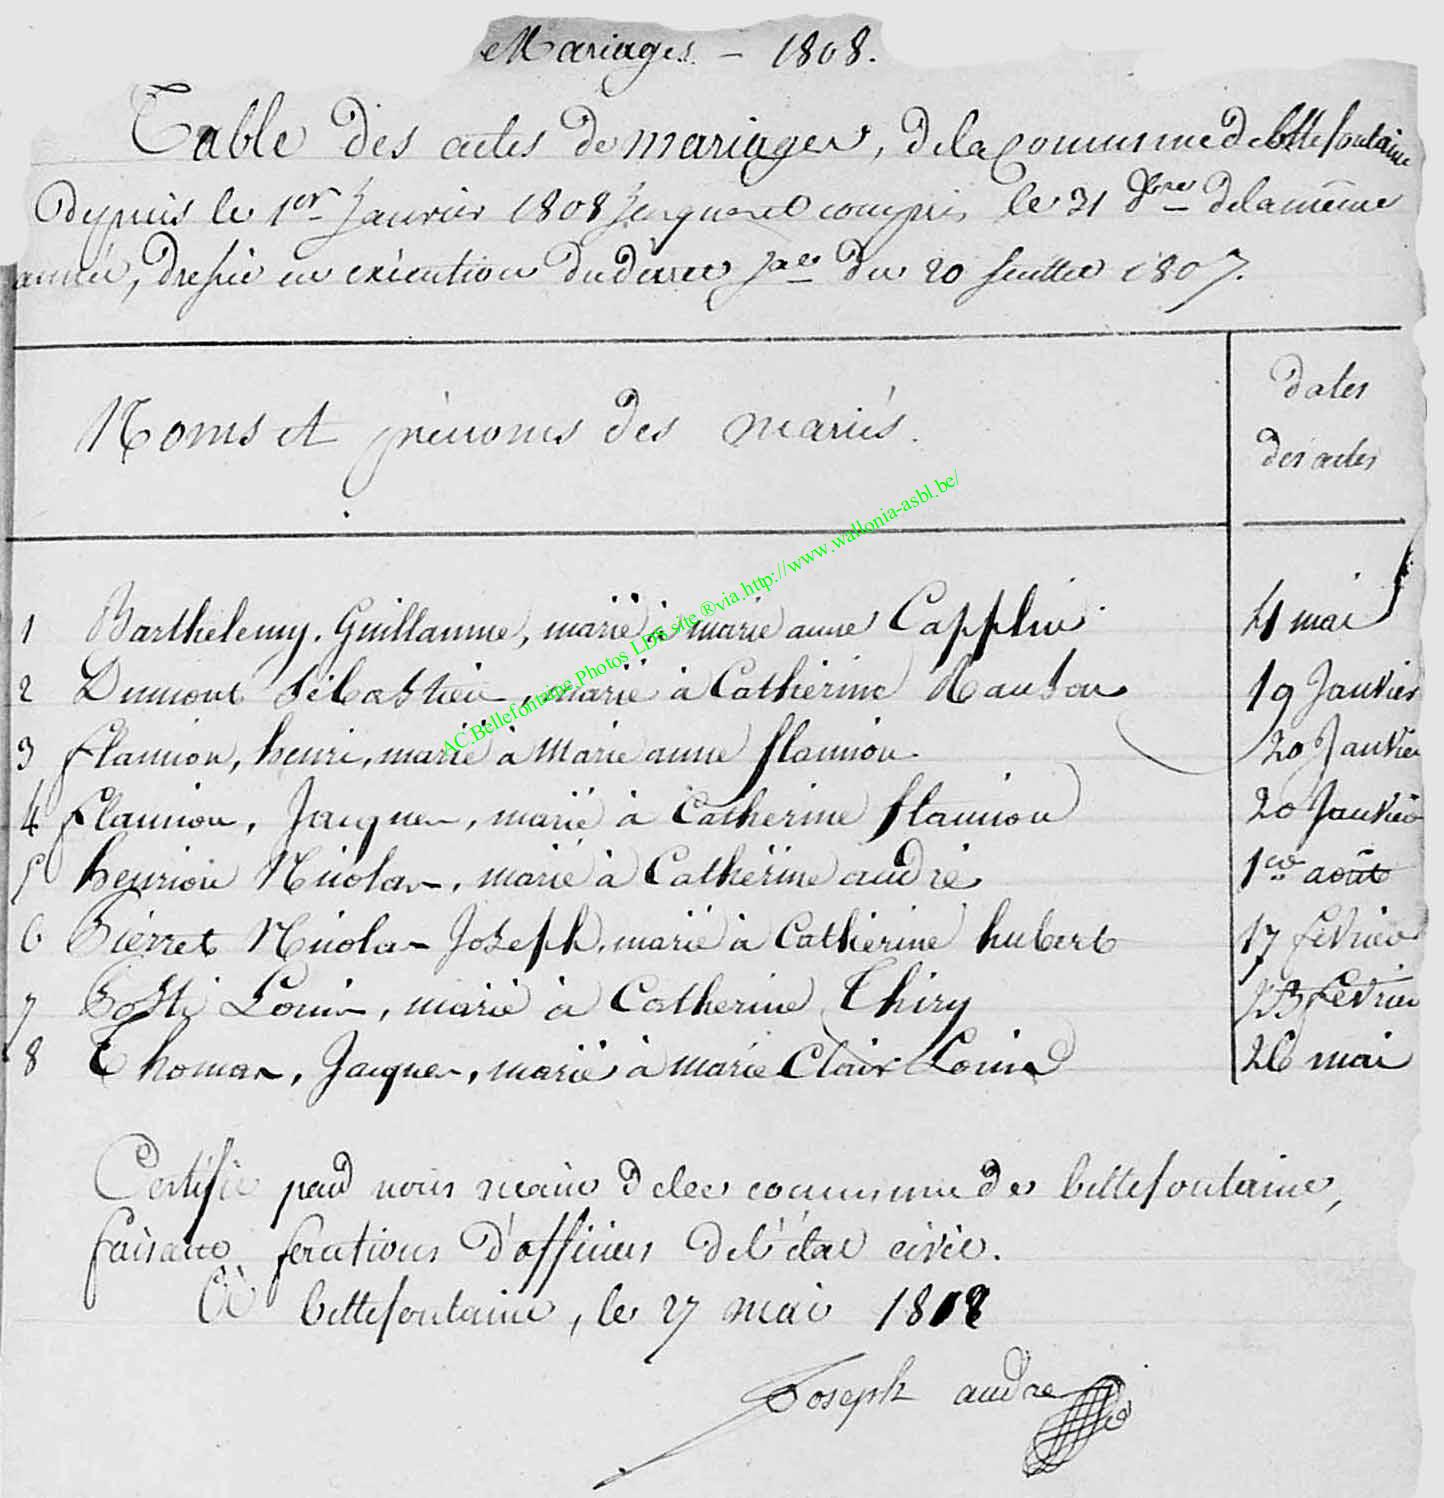 Mariages – 1808.
Table des actes de mariages, de la commune de bellefontaine
depuis le 1er Janvier 1808 jusques et compris le 31 Xbre de la même
année, dressée en exécution du décret du 20 Juillet 1807.
Noms et prénoms des mariés.
dates
des actes
1 Barthelemy. Guillaume, marié à marie anne Capplin 4 mai
2 Dumont Sébastien, marié à Catherine Hanson 19 Janvier
3 flamion, henri, marié à Marie anne flamion 20 Janvier
4 flamion, Jacques, marié à Catherine flamion 20 Janvier
5 henrion Nicolas, marié à Catherine andré 1er août
6 Pierret Nicolas Joseph, marié à Catherine hubert 17 février
7 Louis, marié à Catherine Thiry février
8 Thomas, Jacques, marié à marie Clair Louis 26 mai
Certifié par nous maire de la commune de bellefontaine,
faisant fonctions d'officier de l'état civil.
à bellefontaine, le 27 mai 1812
Joseph andre
AC.Bellefontaine Photos LDS site ® via.http://www.wallonia-asbl.be/